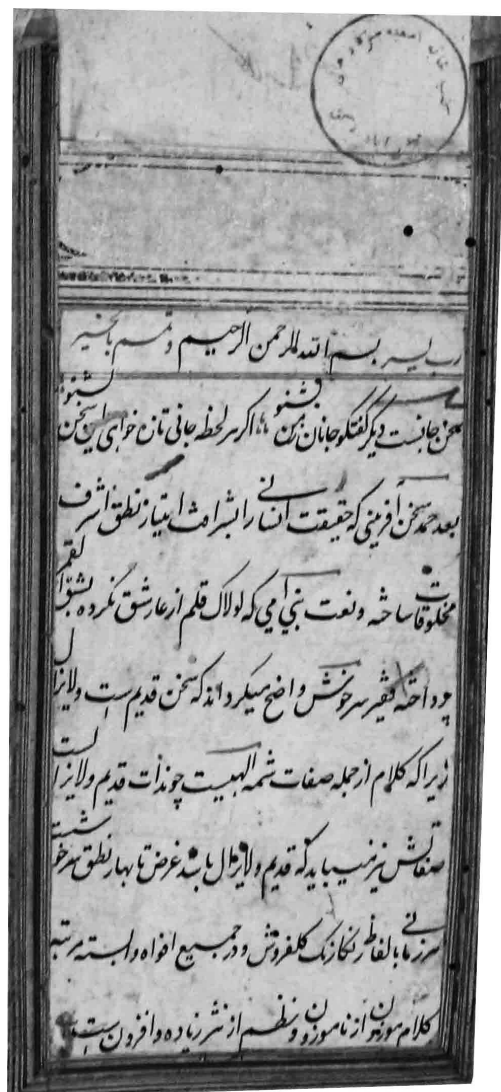 رب یسر بسم الله الرحمن الرحیم و تمم بالخیر
سخن جانست دیگر گفتگو جانان ز من بشنو اگر هر لحظه جانی تازه خواهی این سخن بشنو
بعد حمد سخن آفرینی که حقیقت انسانی را بشرافت امتیاز نطق اشرف
مخلوقات ساخته و نعت نبی امی که لولاک قلم از عار شق نکرده بشق القمر
پرداخته فقیر سرخوش واضح میگرداند که سخن قدیم است و لایزال
زیرا که کلام از جمله صفات ثمه الهیست چون ذات قدیم و لایزالست
صفاتش نیز میباید که قدیم و لایزال باشد غرض تا بهار نطق سرخوشست
هر زمانی بالفاظ رنگارنگ گلفروش و در جمیع افواه والسنه مرتبه
کلام موزون از ناموزون و نظم از نثر زیاده و افزون است